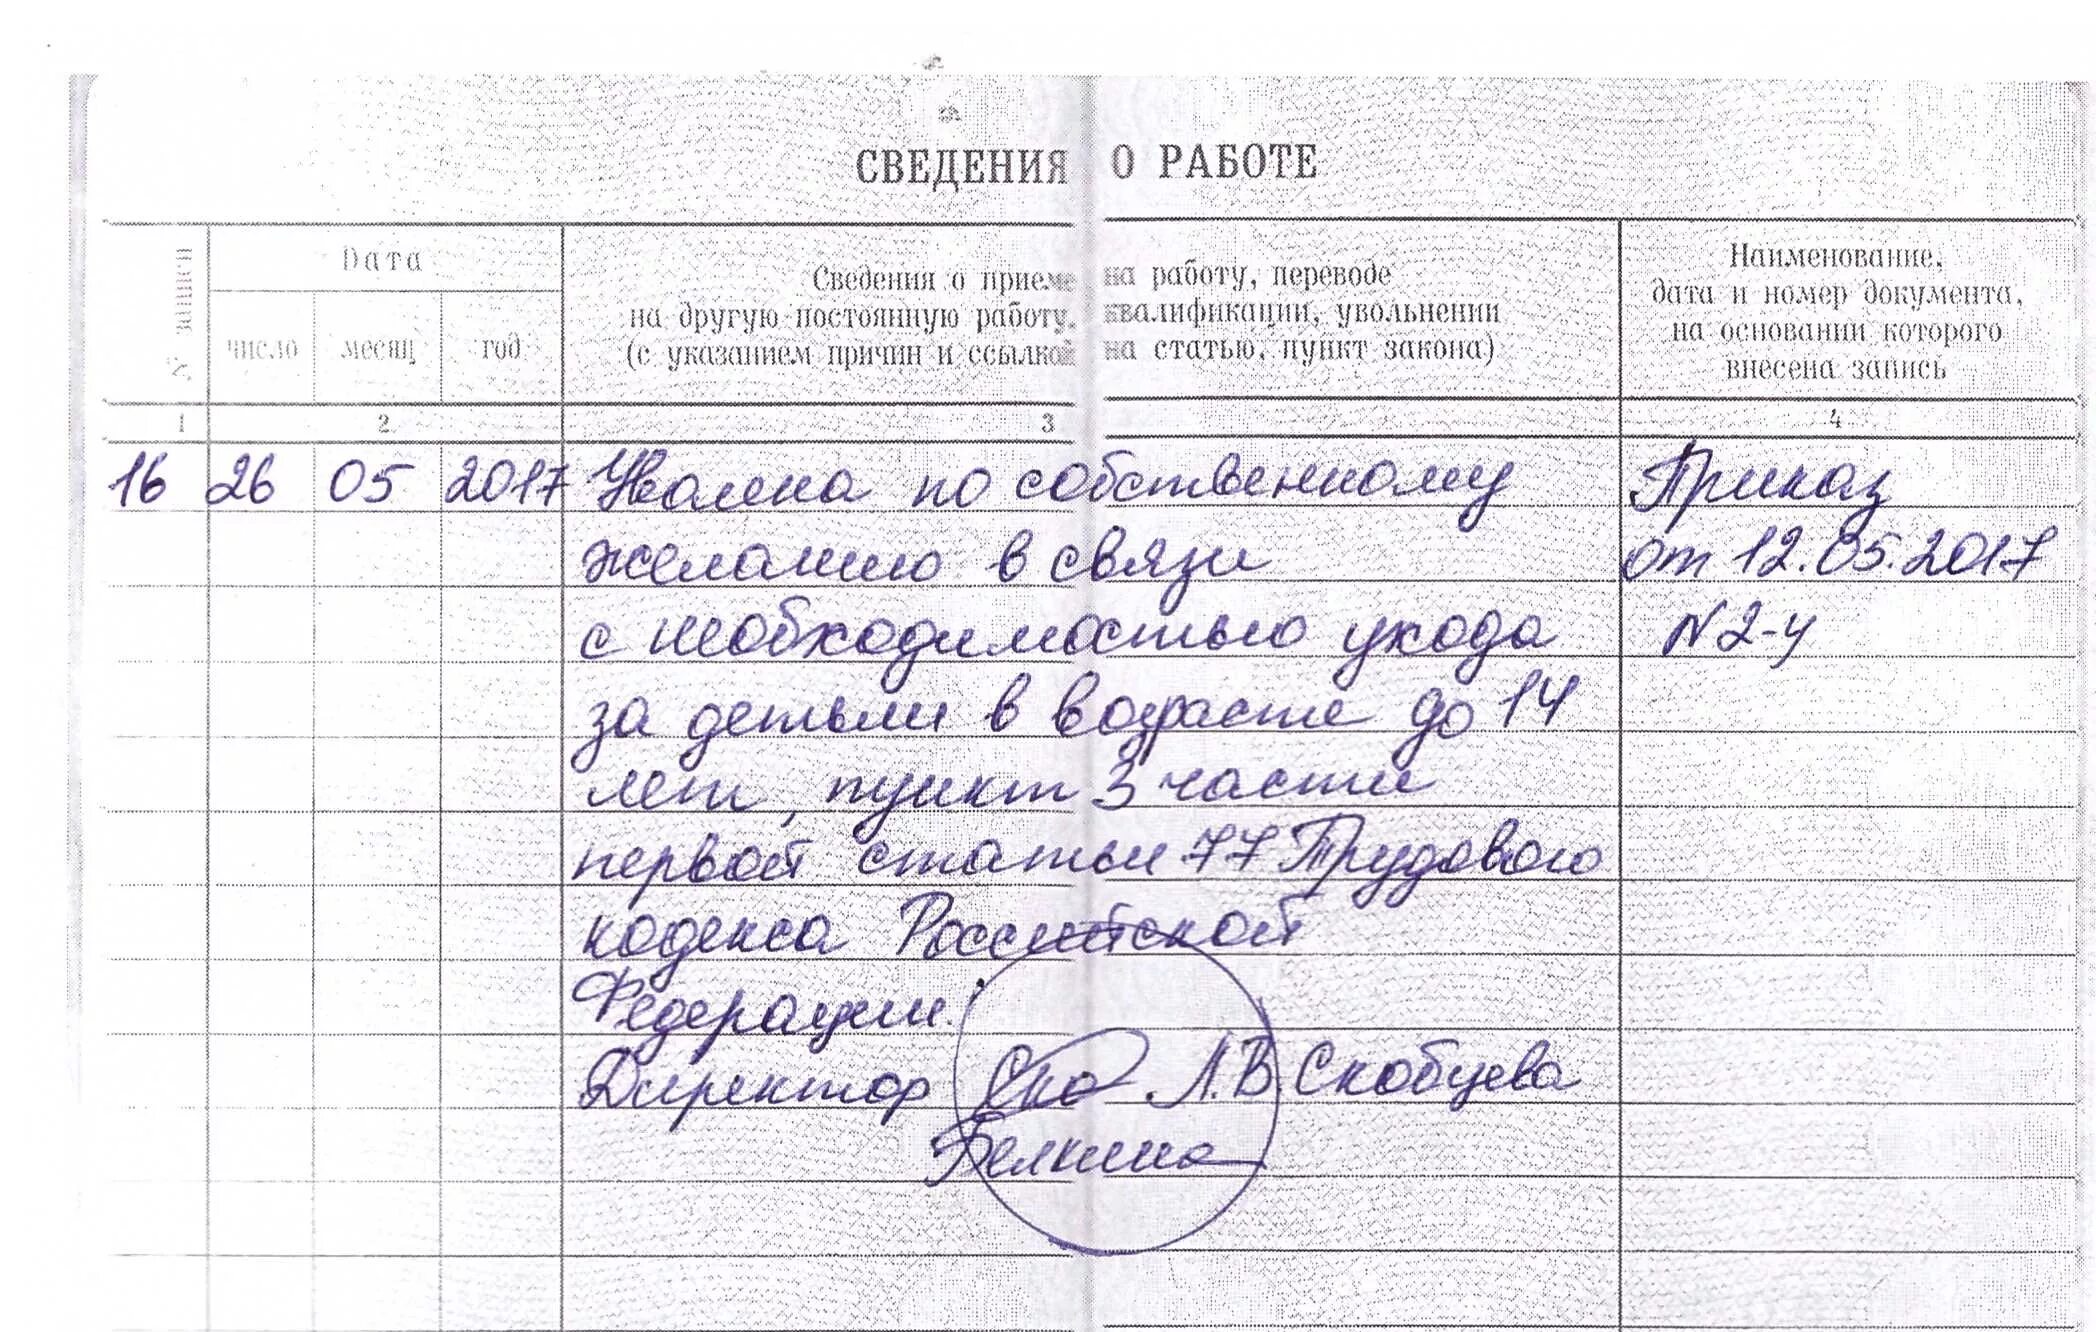 СВЕДЕНИЯ О РАБОТЕ
№ записи
Дата
число месяц год
Сведения о приеме на работу, переводе
на другую постоянную работу, квалификации, увольнении
(с указанием причин и ссылкой на статью, пункт закона)
Наименование,
дата и номер документа,
на основании которого
внесена запись
1 2 3 4
16 26 05 2017 Уволена по собственному Приказ
желанию в связи от 12.05.2017
с необходимостью ухода N 2-у
за детьми в возрасте до 14
лет, пункт 3 части
первой статьи 77 Трудового
кодекса Российской
Федерации.
Директор Ско Л.В. Скобцева
Белкина